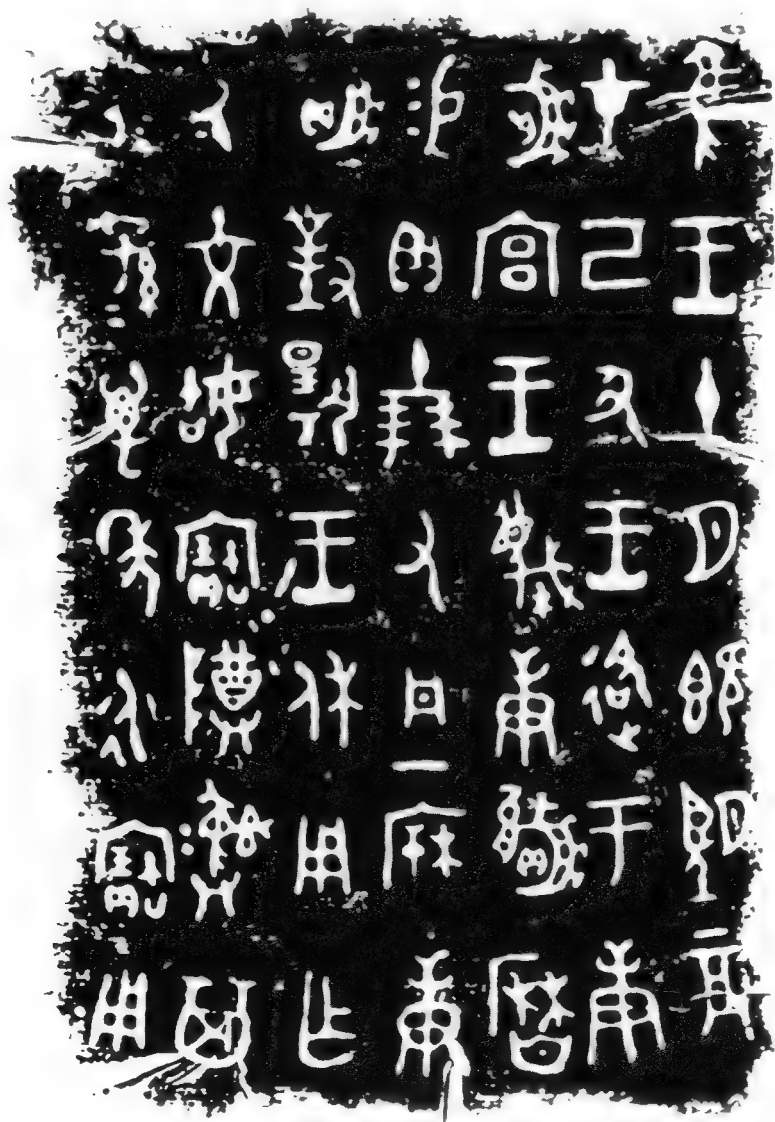 隹王十月既望辰
才己丑王各于庚
嬴宮王蔑庚嬴曆
易貝十朋又丹一𣏟庚
嬴對揚王休用乍
氒文姑寶尊彝其
子子孫孫萬年永寶用